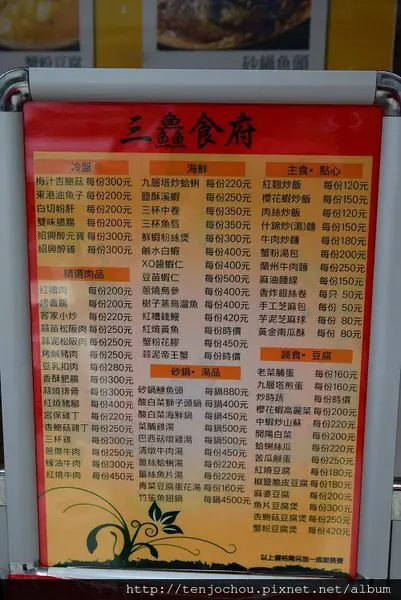 砂鍋魚頭
三鱻食府
冷盤
梅汁杏鮑菇 每份300元
東港油魚子 每份200元
白切粉肝 每份200元
雙味腸腸 每份200元
紹興醉元寶 每份300元
紹興醉雞 每份300元
精選肉品
紅糟肉 每份200元
烤香腸 每份200元
客家小炒 每份220元
蒜苗松阪肉 每份250元
蒜泥松阪肉 每份250元
烤鹹豬肉 每份200元
豆乳扣肉 每份280元
香酥肥腸 每份300元
蒜燒排骨 每份300元
紅燒豬腳 每份400元
宮保雞丁 每份220元
杏鮑菇雞丁 每份250元
三杯雞 每份300元
蔥爆牛肉 每份250元
蠔油牛肉 每份300元
紅燒牛肉 每份450元
海鮮
九層塔炒蛤蜊 每份220元
鹽酥溪蝦 每份250元
三杯中卷 每份350元
三杯魚唇 每份350元
鮮蝦粉絲煲 每份300元
鹹水白蝦 每份400元
XO醬蝦仁 每份350元
豆苗蝦仁 每份500元
蔥燒烏參 每份400元
樹子蒸烏溜魚 每份400元
紅糟錢鰻 每份420元
紅燒黃魚 每份時價
蟹粉花膠 每份450元
蒜泥帝王蟹 每份時價
砂鍋・湯品
砂鍋鰱魚頭 每鍋880元
酸白菜獅子頭鍋 每鍋400元
酸白菜海鮮鍋 每鍋450元
菜脯雞湯 每鍋500元
巴西菇燉雞湯 每鍋500元
清燉牛肉湯 每鍋450元
薑絲蛤蜊湯 每份220元
薑絲魚片湯 每份220元
青菜豆腐蛋花湯 每份160元
竹笙魚翅鍋 每鍋4500元
主食・點心
紅麴炒飯 每份120元
櫻花蝦炒飯 每份150元
肉絲炒飯 每份120元
什錦炒(湯)麵 每份150元
牛肉炒麵 每份180元
蟹粉湯包 每份220元
蘭州牛肉麵 每份250元
麻油麵線 每份150元
香炸銀絲卷 每只 50元
手工芝麻包 每份 50元
芋泥芝麻球 每份 80元
黃金南瓜酥 每份 80元
蔬食・豆腐
老菜脯蛋 每份160元
九層塔煎蛋 每份160元
炒時蔬 每份時價
櫻花蝦高麗菜 每份200元
中蝦炒山蘇 每份220元
開陽白菜 每份200元
蛤蜊絲瓜 每份220元
苦瓜鹹蛋 每份250元
紅燒豆腐 每份180元
椒鹽脆皮豆腐 每份180元
麻婆豆腐 每份200元
魚片豆腐煲 每份300元
杏鮑菇豆腐煲 每份250元
蟹粉豆腐煲 每份420元
以上價格需另加一成服務費
http://tenjochou.pixnet.net/album